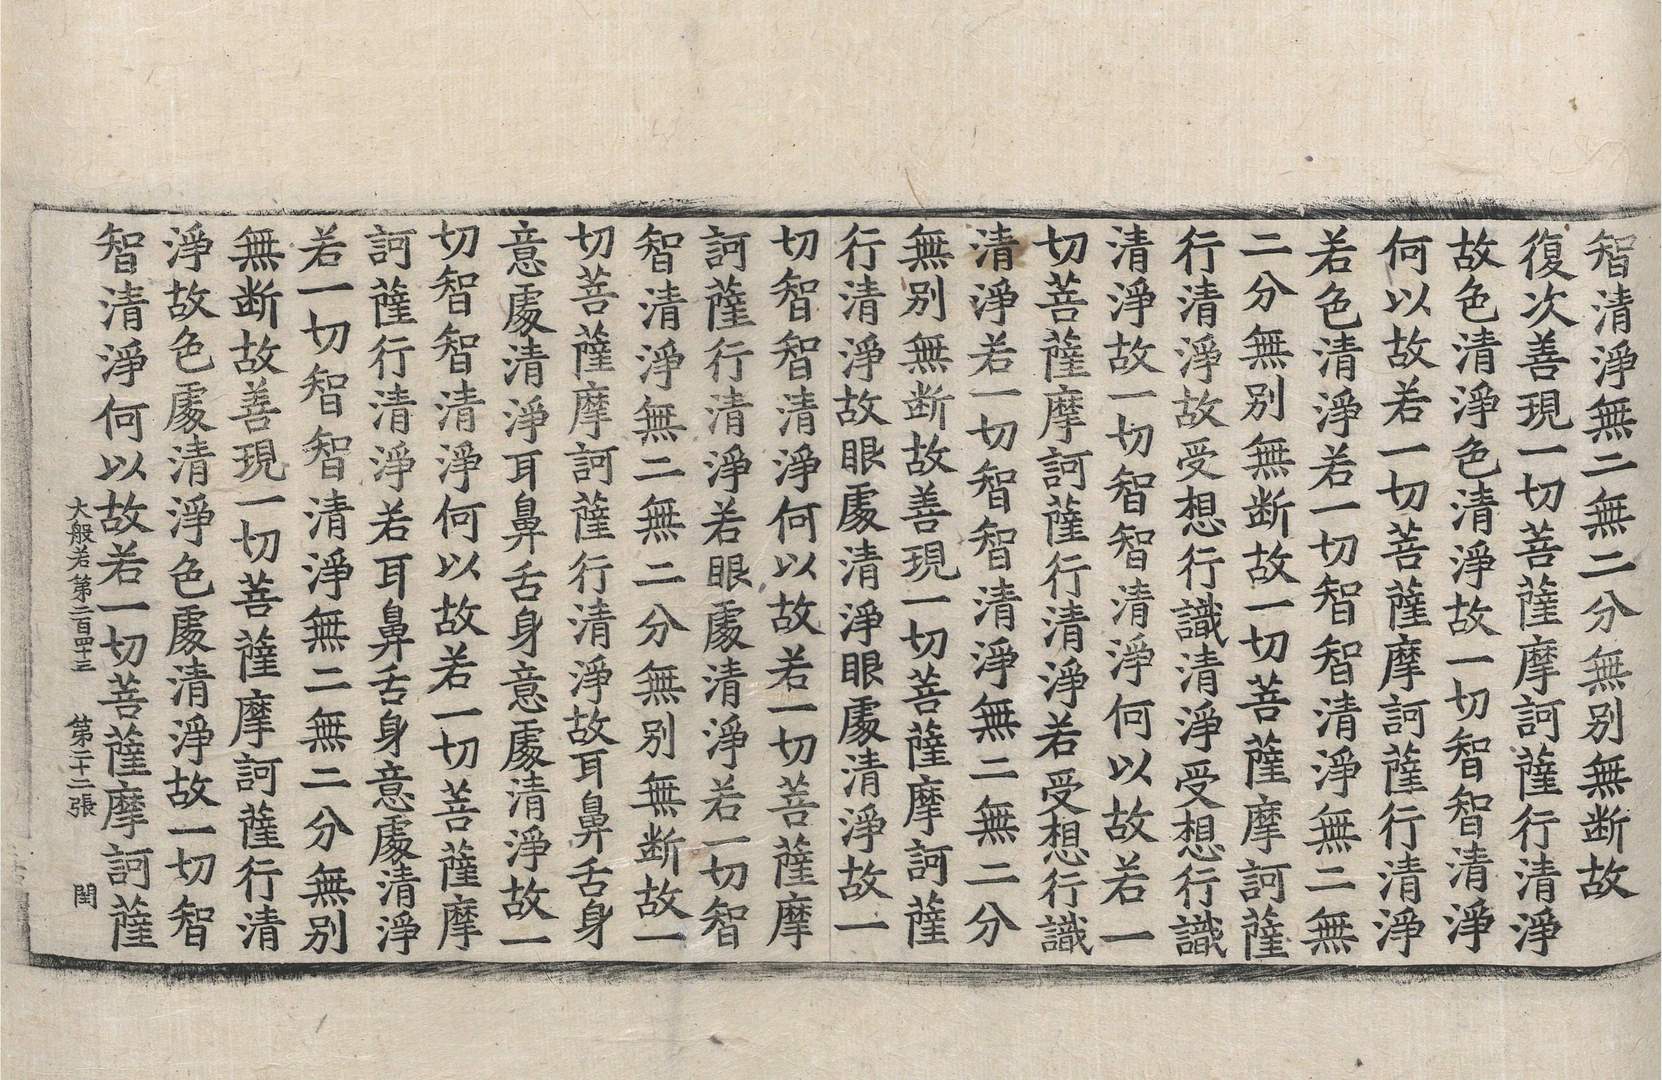 智清淨無二無二分無別無断故
復次善現一切菩薩摩訶薩行清淨
故色清淨色清淨故一切智智清淨
何以故若一切菩薩摩訶薩行清淨
若色清淨若一切智智清淨無二無
二分無別無断故一切菩薩摩訶薩
行清淨故受想行識清淨受想行識
清淨故一切智智清淨何以故若一
切菩薩摩訶薩行清淨若受想行識
清淨若一切智智清淨無二無二分
無別無断故善現一切菩薩摩訶薩
行清淨故眼處清淨眼處清淨故一
切智智清淨何以故若一切菩薩摩
訶薩行清淨若眼處清淨若一切智
智清淨無二無二分無別無断故一
切菩薩摩訶薩行清淨故耳鼻舌身
意處清淨耳鼻舌身意處清淨故一
切智智清淨何以故若一切菩薩摩
訶薩行清淨若耳鼻舌身意處清淨
若一切智智清淨無二無二分無別
無断故善現一切菩薩摩訶薩行清
淨故色處清淨色處清淨故一切智
智清淨何以故若一切菩薩摩訶薩
大般若第二百四十三 第二十二張 閏